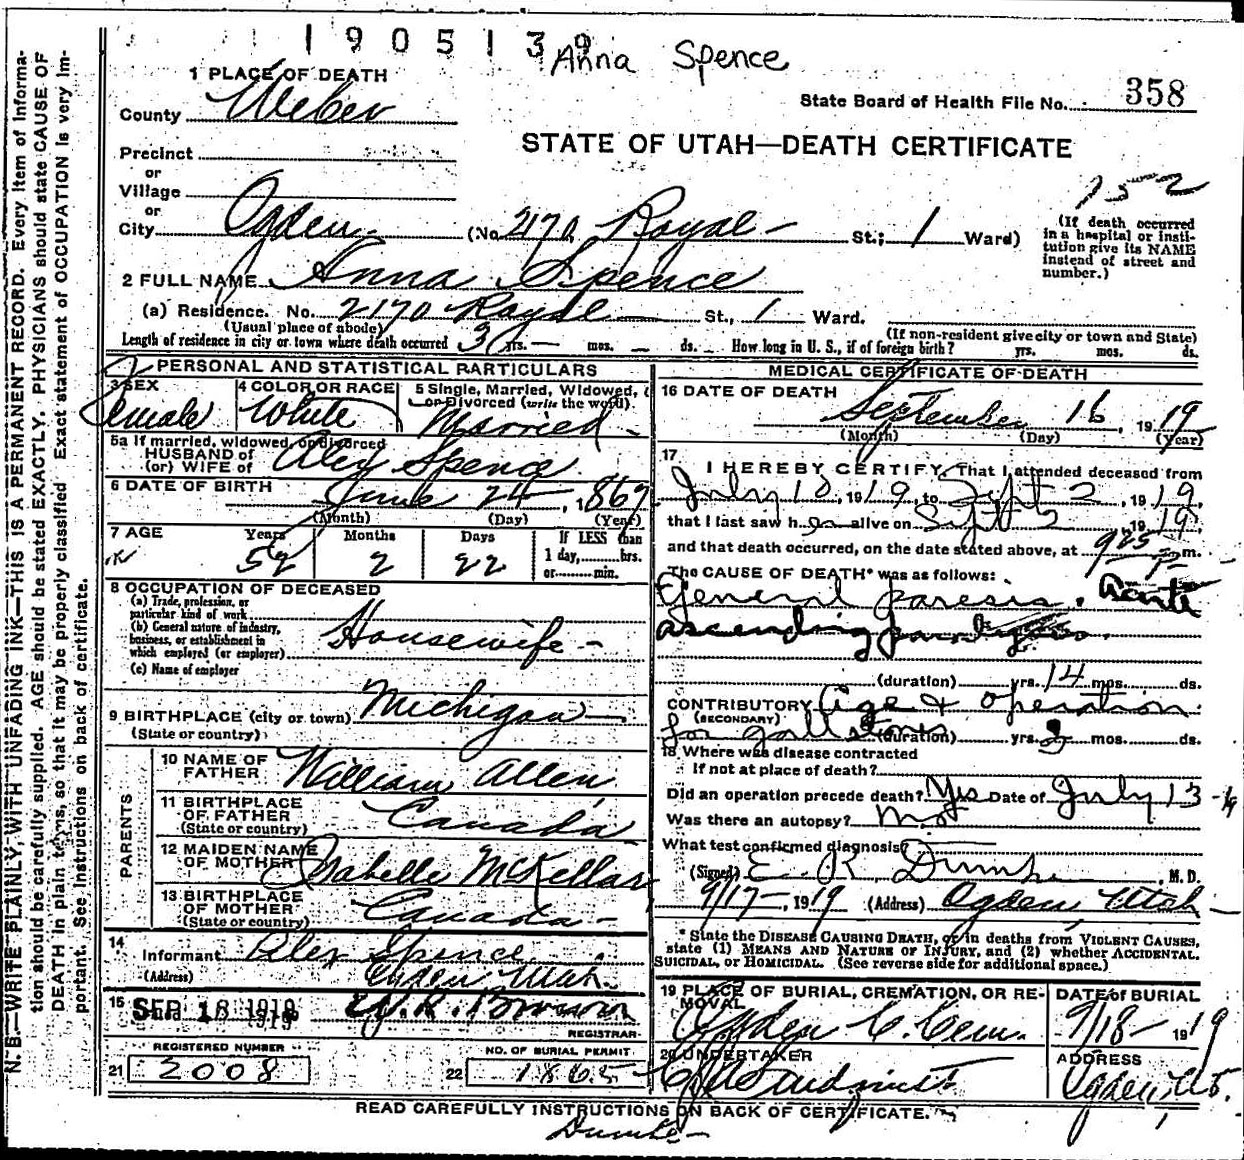 1905139
Anna Spence
1 PLACE OF DEATH
County Weber
State Board of Health File No. 358
STATE OF UTAH—DEATH CERTIFICATE
Precinct
or
Village
or
City Ogden (No. 2170 Royal St.; 1 Ward)
(If death occurred in a hospital or institution give its NAME instead of street and number.)
2 FULL NAME Anna Spence
(a) Residence. No. 2170 Royal St., 1 Ward.
(Usual place of abode) (If non-resident give city or town and State)
Length of residence in city or town where death occurred yrs. mos. ds. How long in U. S., if of foreign birth? yrs. mos. ds.
PERSONAL AND STATISTICAL PARTICULARS
3 SEX
Female
4 COLOR OR RACE
White
5 Single, Married, Widowed, or Divorced (write the word)
Married
5a If married, widowed, or divorced
HUSBAND of
(or) WIFE of Alex Spence
6 DATE OF BIRTH June 24, 1867
(Month) (Day) (Year)
7 AGE Years 52 Months 2 Days 22
If LESS than
1 day, hrs.
or min.
8 OCCUPATION OF DECEASED
(a) Trade, profession, or
particular kind of work
(b) General nature of industry,
business, or establishment in
which employed (or employer)
Housewife
(c) Name of employer
9 BIRTHPLACE (city or town) Michigan
(State or country)
PARENTS
10 NAME OF FATHER William Allen
11 BIRTHPLACE OF FATHER Canada
(State or country)
12 MAIDEN NAME OF MOTHER Isabelle McKellar
13 BIRTHPLACE OF MOTHER Canada
(State or country)
14 Informant Alex Spence
(Address) Ogden Utah.
15 SEP 18 1919
REGISTRAR
REGISTERED NUMBER
21 2008
NO. OF BURIAL PERMIT
22 1865
MEDICAL CERTIFICATE OF DEATH
16 DATE OF DEATH
September 16, 1919
(Month) (Day) (Year)
17
I HEREBY CERTIFY, That I attended deceased from
July 10, 1919, to Sept 2, 1919,
that I last saw her alive on Sept 2, 1919,
and that death occurred, on the date stated above, at 925 P m.
The CAUSE OF DEATH* was as follows:
General paresis. Acute
ascending paralysis.
(duration) yrs. 14 mos. ds.
CONTRIBUTORY Age & operation
(SECONDARY)
for gallstones (duration) yrs. 2 mos. ds.
18 Where was disease contracted
if not at place of death?
Did an operation precede death? Yes Date of July 13-19
Was there an autopsy? No
What test confirmed diagnosis?
(Signed) E. R. Dumke, M. D.
9/17, 1919 (Address) Ogden Utah
* State the DISEASE CAUSING DEATH, or in deaths from VIOLENT CAUSES,
state (1) MEANS AND NATURE OF INJURY, and (2) whether ACCIDENTAL,
SUICIDAL, OR HOMICIDAL. (See reverse side for additional space.)
19 PLACE OF BURIAL, CREMATION, OR REMOVAL
Ogden C. Cem.
DATE of BURIAL
9/18 1919
20 UNDERTAKER
ADDRESS
Ogden, Ut.
READ CAREFULLY INSTRUCTIONS ON BACK OF CERTIFICATE.
Dumke
N. B.—WRITE PLAINLY, WITH UNFADING INK—THIS IS A PERMANENT RECORD. Every item of information should be carefully supplied. AGE should be stated EXACTLY. PHYSICIANS should state CAUSE OF DEATH in plain terms, so that it may be properly classified. Exact statement of OCCUPATION is very important. See instructions on back of certificate.